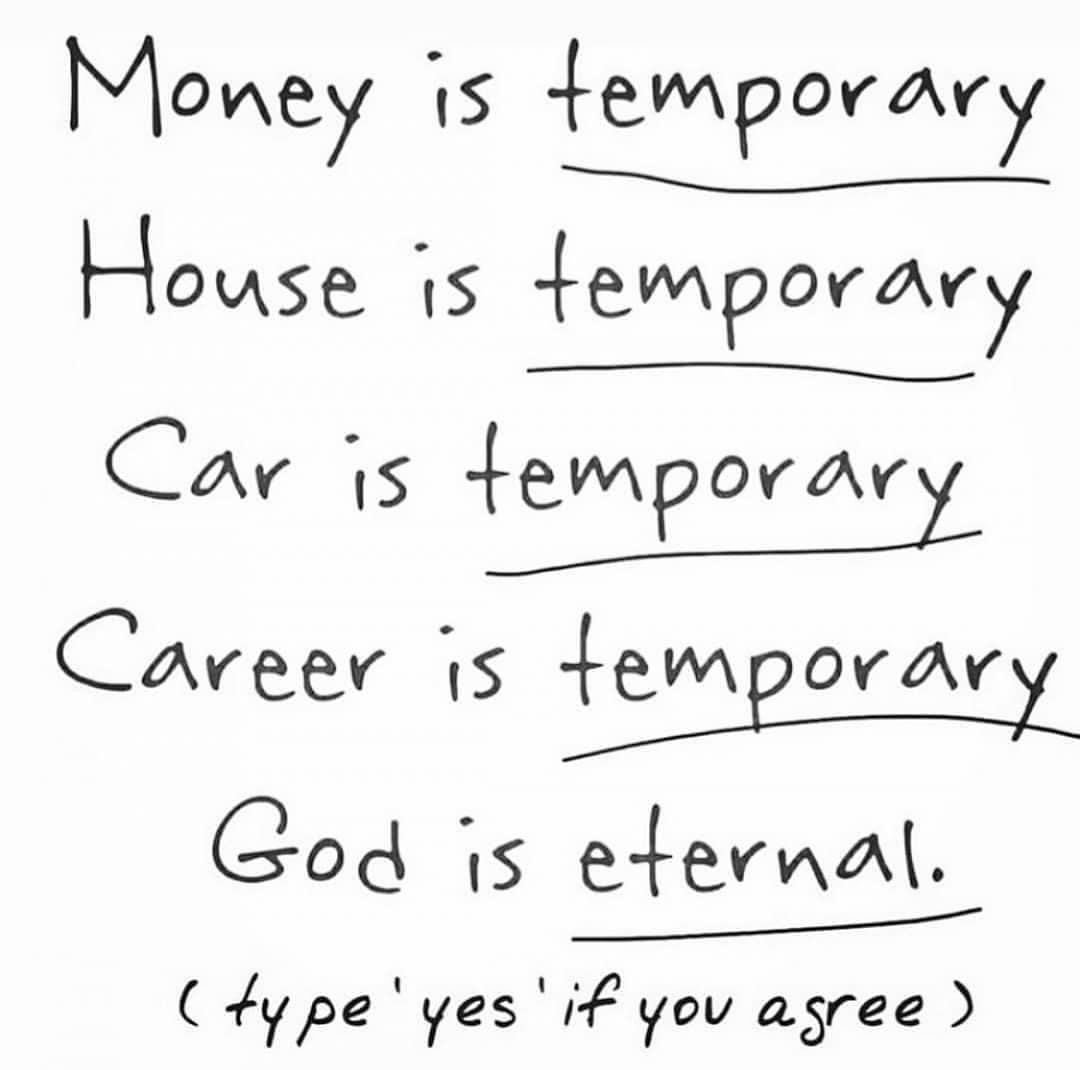 Money is temporary
House is temporary
Car is temporary
Career is temporary
God is eternal.
(type 'yes' if you agree)